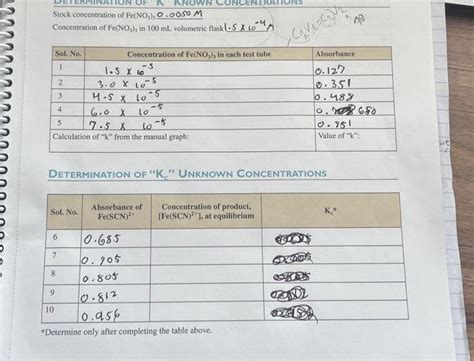 DETERMINATION OF "K" KNOWN CONCENTRATIONS
Stock concentration of Fe(NO3)3 0.0050 M
Concentration of Fe(NO3)3 in 100 mL volumetric flask 1.5 x 10^-4 M
Sol. No. Concentration of Fe(NO3)3 in each test tube Absorbance
1 1.5 x 10^-5 0.127
2 3.0 x 10^-5 0.351
3 4.5 x 10^-5 0.488
4 6.0 x 10^-5 0. 680
5 7.5 x 10^-5 0.751
Calculation of "k" from the manual graph: Value of "k":
DETERMINATION OF "Kc" UNKNOWN CONCENTRATIONS
Sol. No. Absorbance of Fe(SCN)2+ Concentration of product, [Fe(SCN)2+], at equilibrium Kc*
6 0.685
7 0.705
8 0.805
9 0.812
10 0.956
*Determine only after completing the table above.